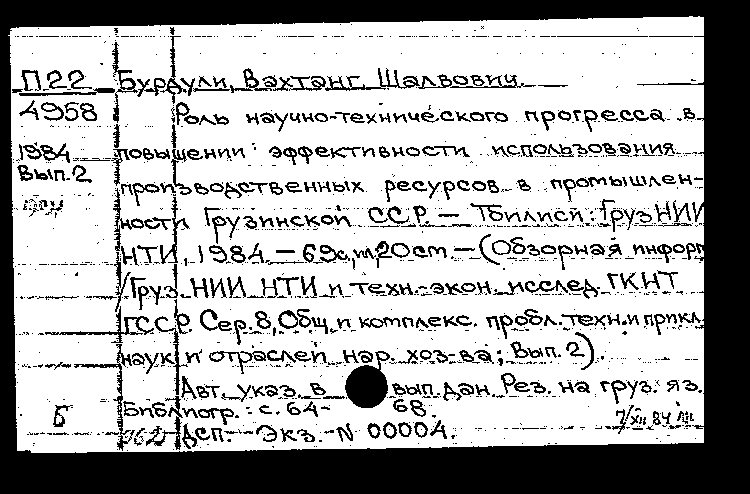 П22 Бурдули, Вахтанг Шалвович.
4958 Роль научно-технического прогресса в
1984 повышении эффективности использования
Вып.2 производственных ресурсов в промышлен-
ности Грузинской ССР. — Тбилиси: ГрузНИИ
НТИ, 1984. — 69с, 20см — (Обзорная информ
/Груз. НИИ НТИ и техн.-экон. исслед. ГКНТ
ГССР. Сер. 8, Общ. и комплекс. пробл. техн. и прикл.
наук и отраслей нар. хоз-ва; Вып. 2).
Авт. указ. в вып. дан. Рез. на груз. яз.
Б Библиогр.: с. 64- 68.
ДСП. - Экз. - N 00004.